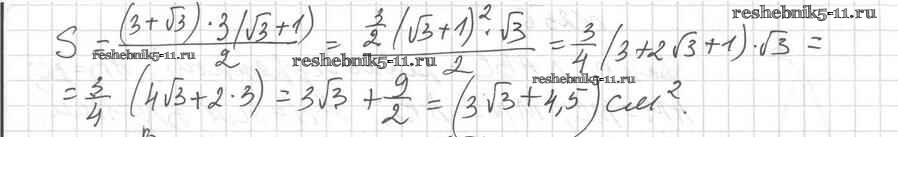 reshebnik5-11.ru
S = (3+√3)·3(√3+1)/2 = 3/2(√3+1)²·√3/2 = 3/4(3+2√3+1)·√3 =
reshebnik5-11.ru reshebnik5-11.ru
reshebnik5-11.ru
= 3/4 (4√3+2·3) = 3√3 + 9/2 = (3√3+4,5) см².